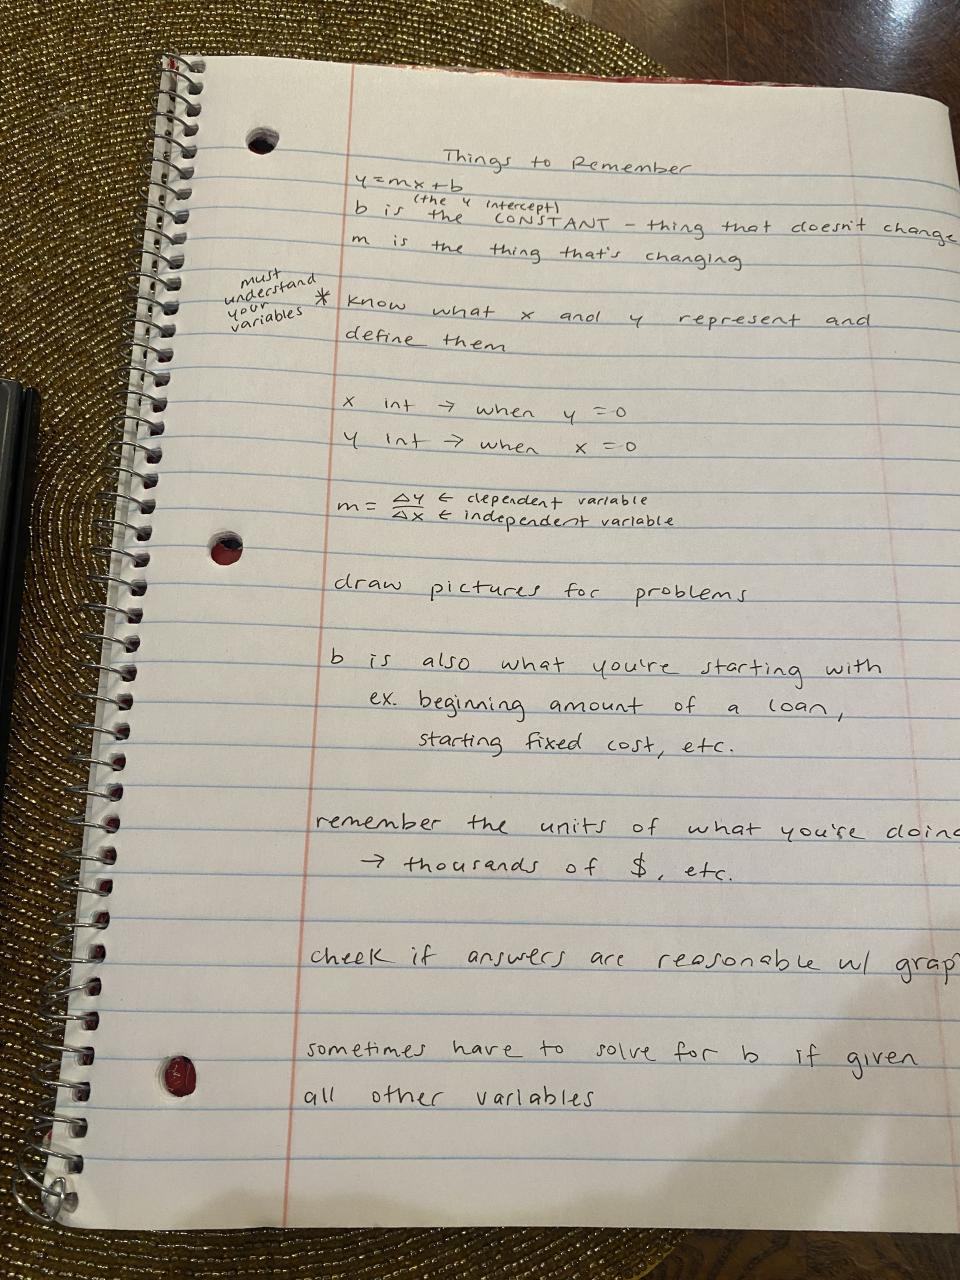 Things to Remember
y = mx + b
(the y intercept)
b is the CONSTANT - thing that doesn't change
m is the thing that's changing
must
understand
your
variables
* know what x and y represent and
define them
x int → when y = 0
y int → when x = 0
m = Δy ← dependent variable
Δx ← independent variable
draw pictures for problems
b is also what you're starting with
ex. beginning amount of a loan,
starting fixed cost, etc.
remember the units of what you're doing
→ thousands of $, etc.
check if answers are reasonable w/ grap
sometimes have to solve for b if given
all other variables